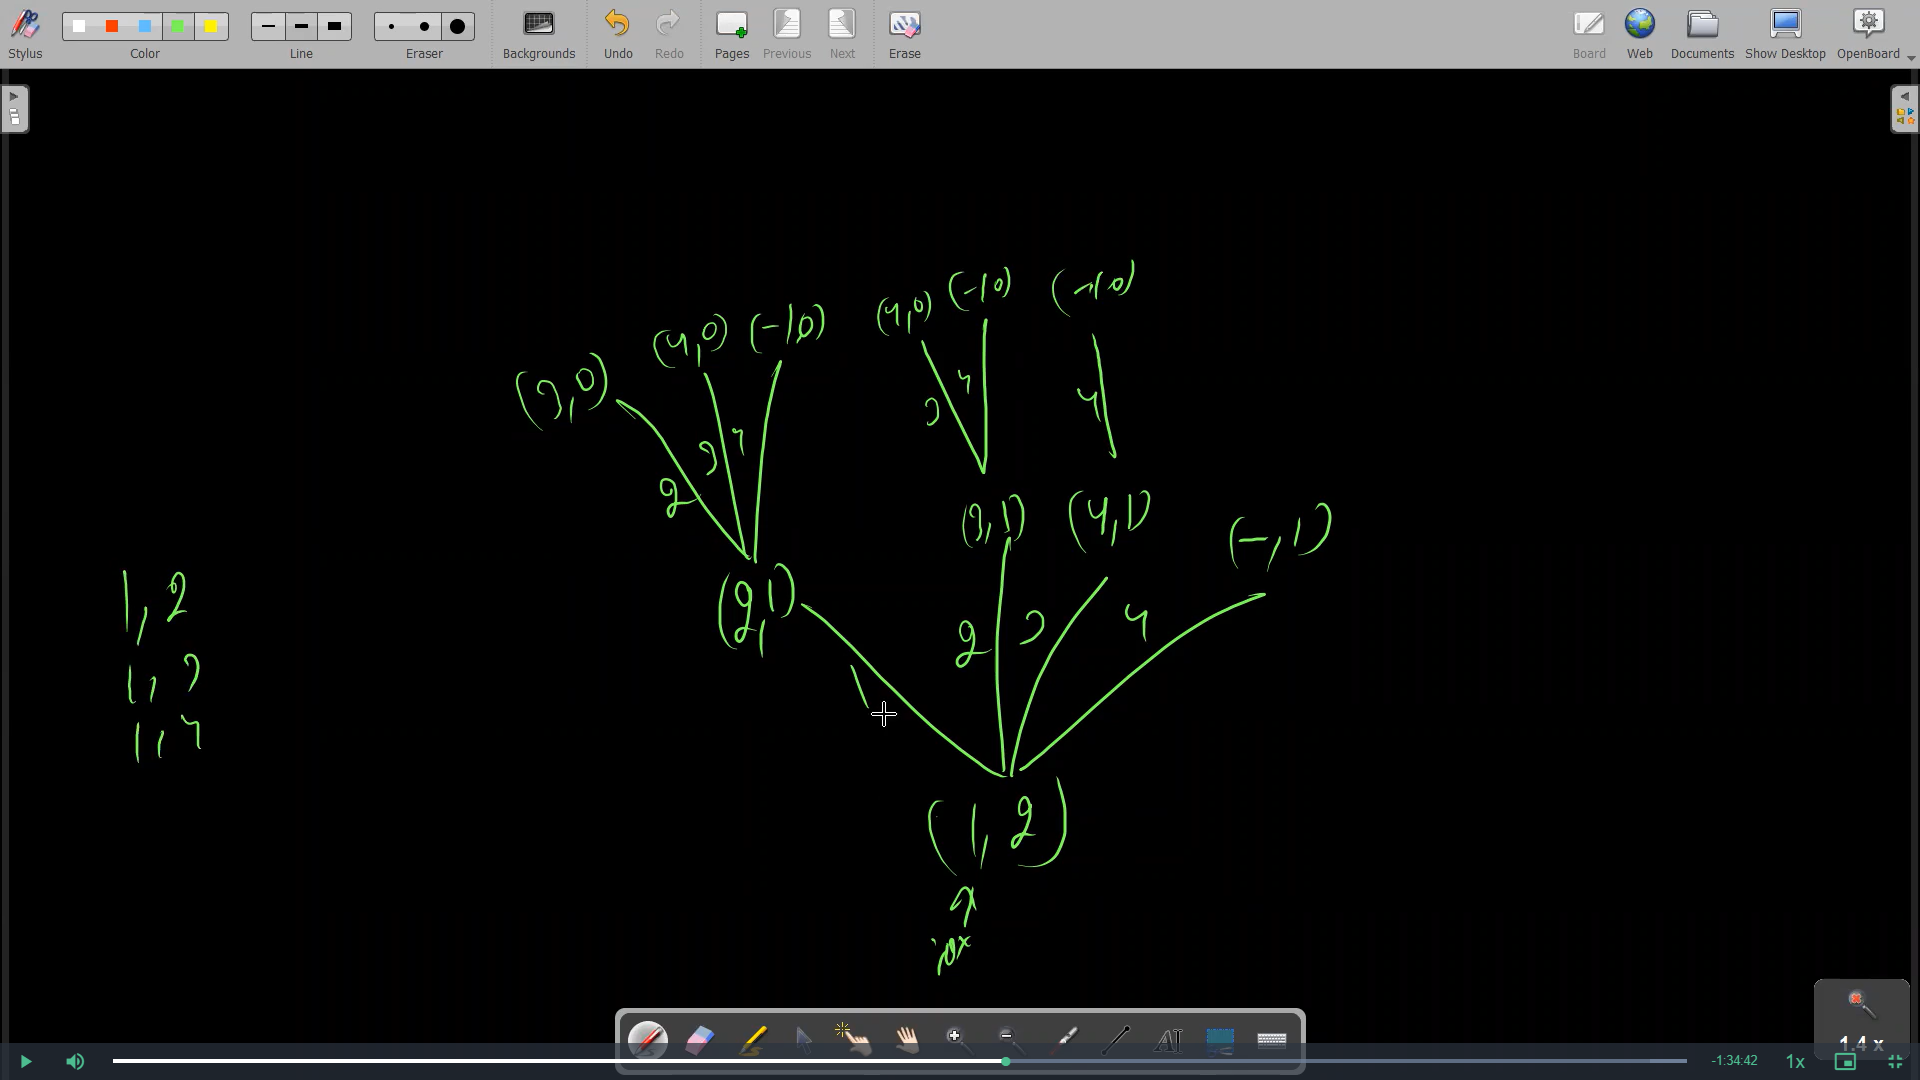 Stylus Color Line Eraser Backgrounds Undo Redo Pages Previous Next Erase Board Web Documents Show Desktop OpenBoard
(-10) (-10)
(4,0)
(4,0) (-1,0)
(3,0)
4
3 4
3 4
2
(3,1) (4,1) (-,1)
(2,1)
1, 2
2 3 4
1, 3
1
1, 4
(1, 2)
1.4 x
-1:34:42 1x